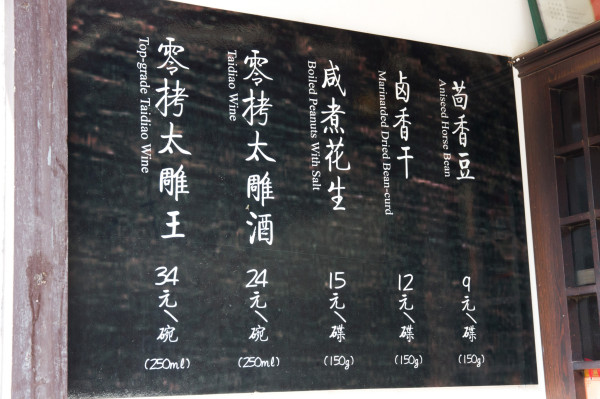 茴香豆
Aniseed Horse Bean
9元\碟
(150g)
卤香干
Marinatded Dried Bean-curd
12元\碟
(150g)
咸煮花生
Boiled Peanuts With Salt
15元\碟
(150g)
零拷太雕酒
Taidiao Wine
24元\碗
(250ml)
零拷太雕王
Top-grade Taidiao Wine
34元\碗
(250ml)